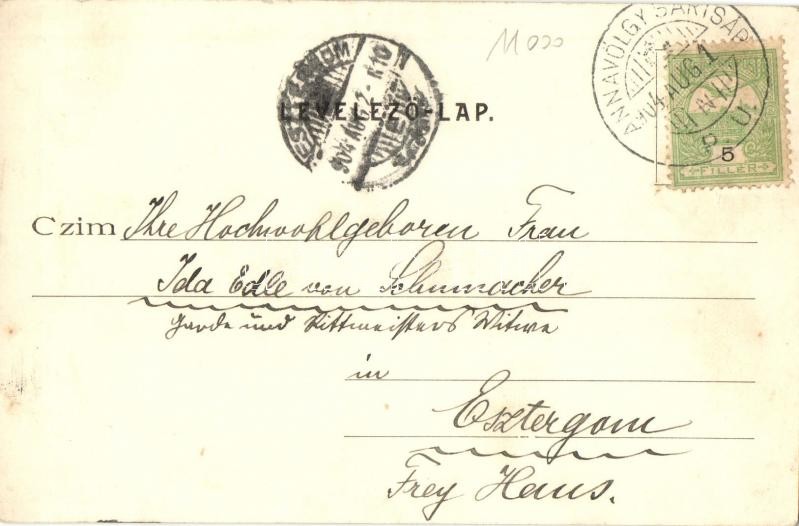 11000
ANNAVÖLGY SÁRISÁP
904 AUG 1
P. U.
ESZTERGOM
904 AUG 2
5
FILLÉR
LEVELEZŐ-LAP.
Czim Ihre Hochwohlgeboren Frau
Ida Edle von Schumacher
Garde und Rittmeisters Witwe
in
Esztergom
Frey Haus.